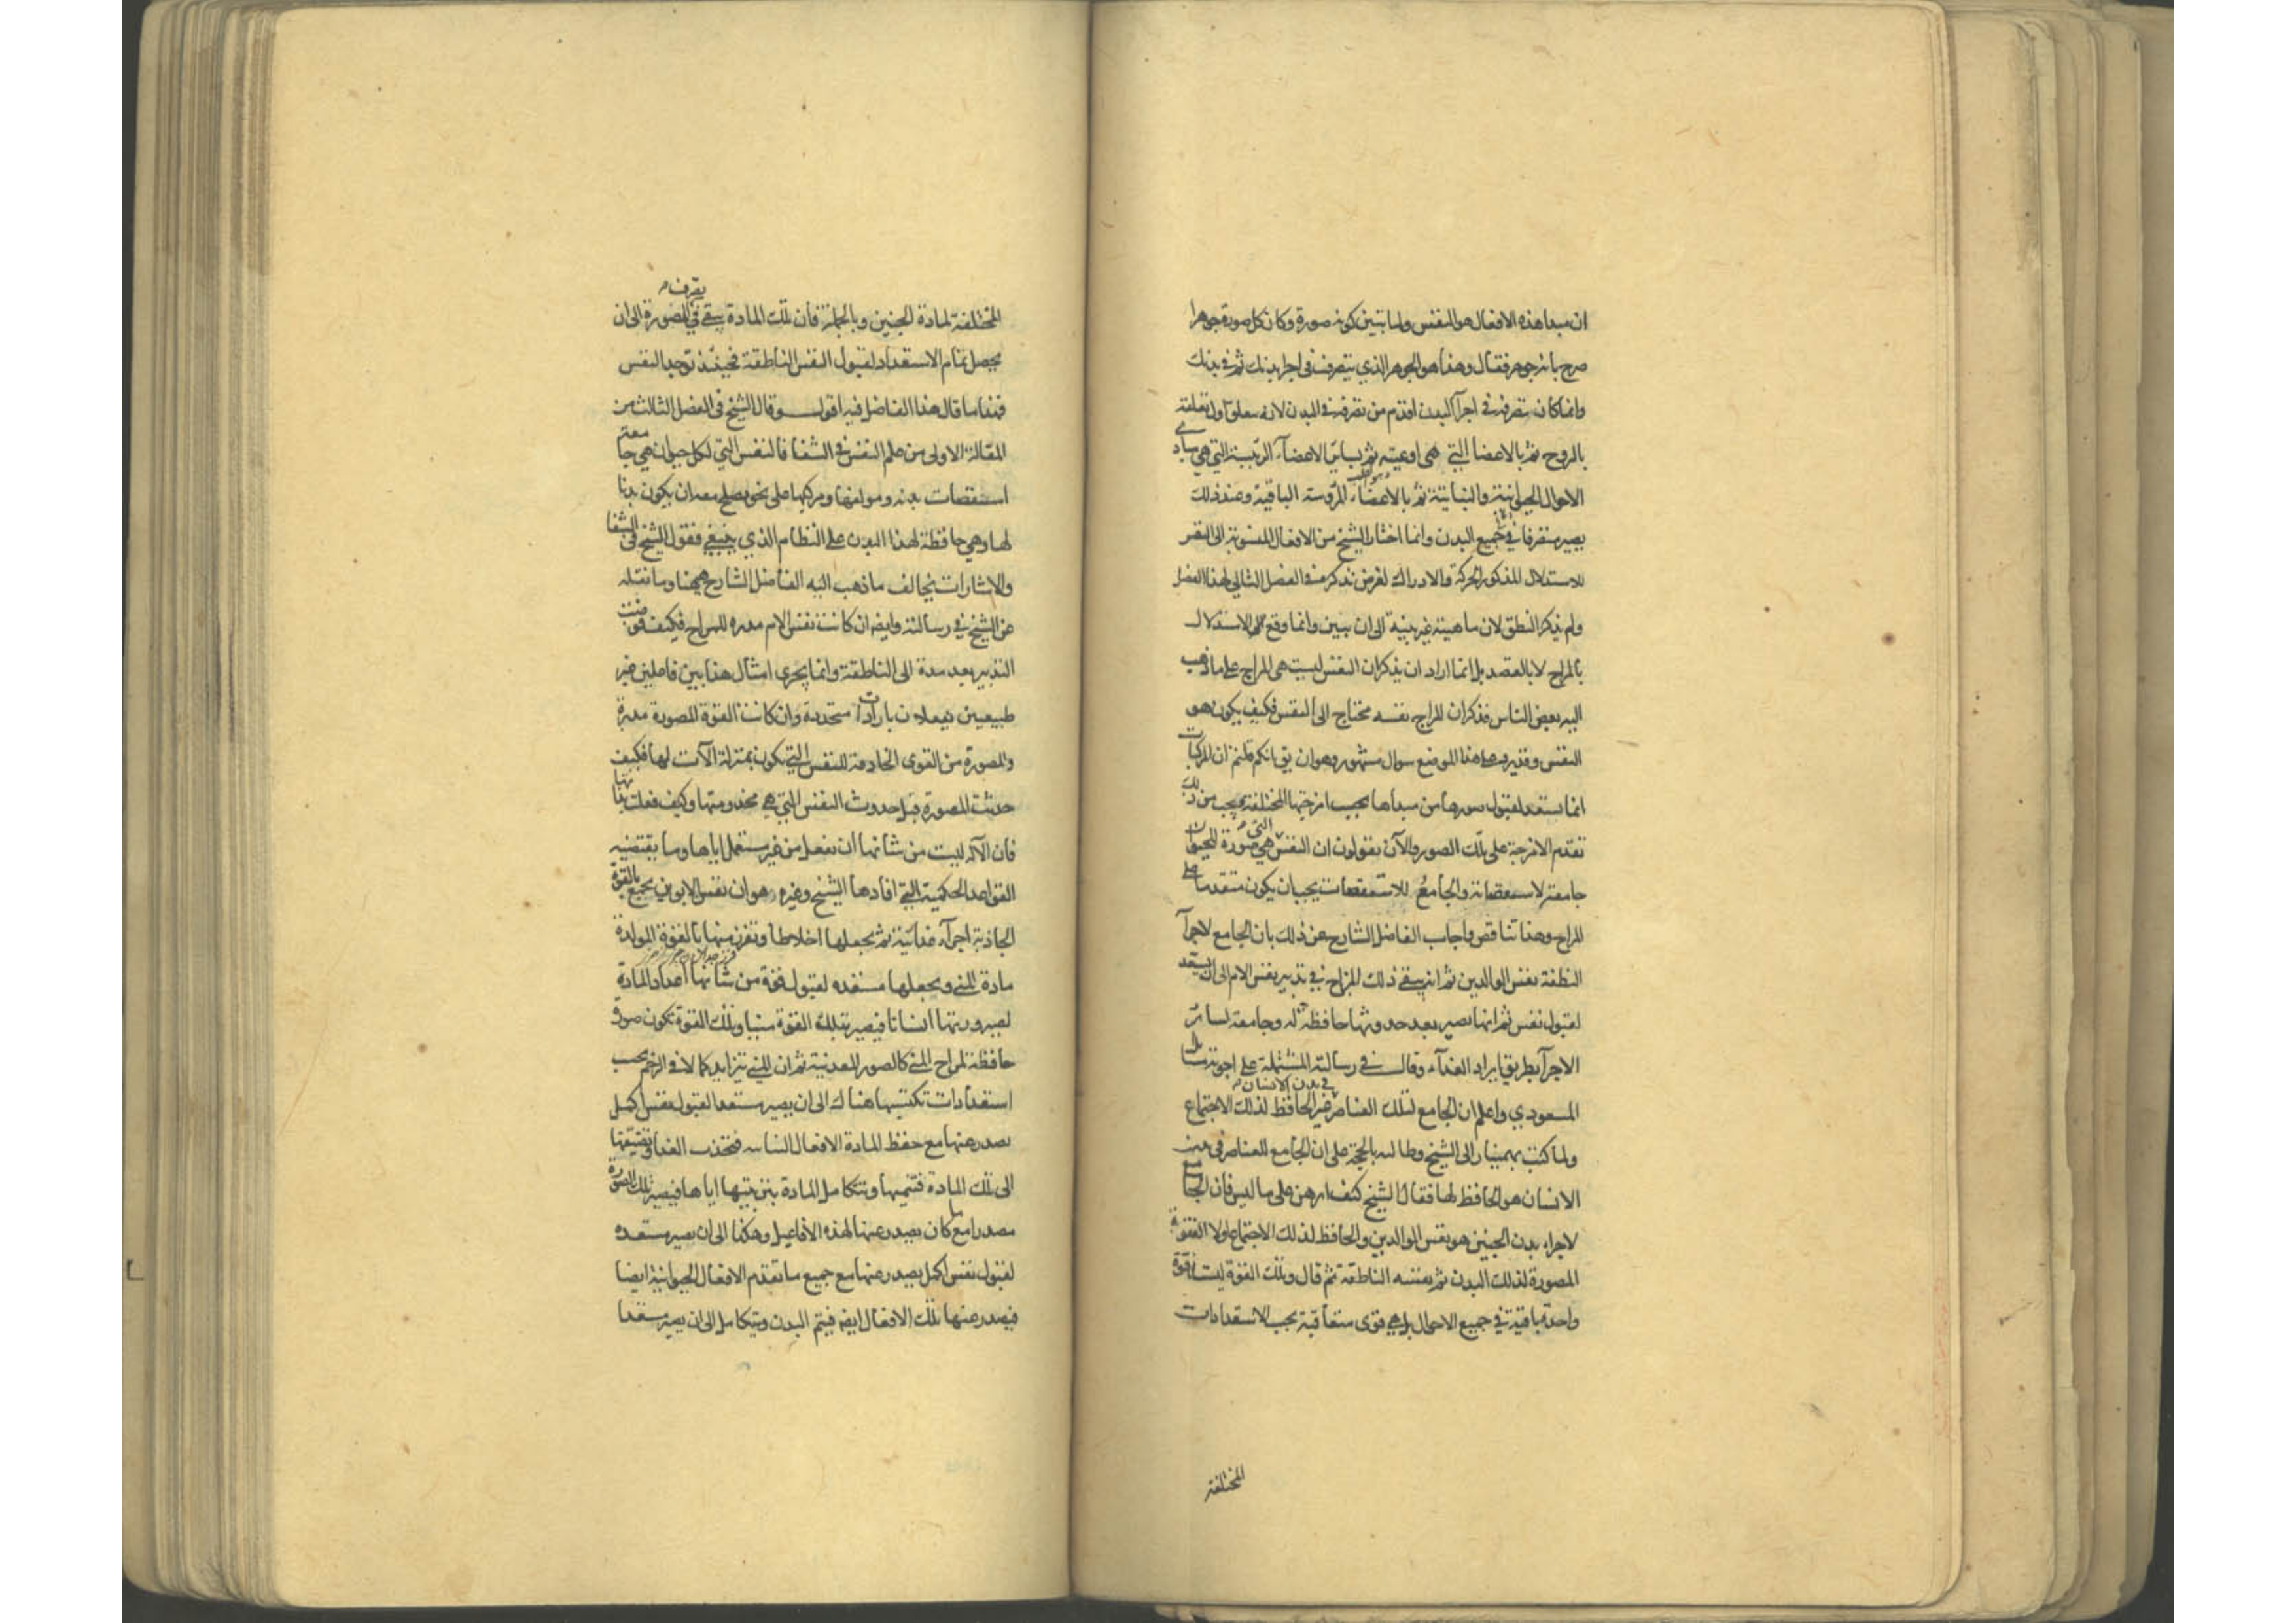 ان مبدا هذه الافعال هو النفس ولما تبين كونه صورة وكان كل صورة جوهرا
صرح بانه جوهر فقال وهذا هو الجوهر الذي يتصرف في اجزا بدنك ثم في بدنك
وانما كان تصرفه في اجزآ البدن اقدم من تصرفه في البدن لانه متعلق اول تعلقه
بالروح ثم بالاعضا التي هي اوعيته ثم بساير الاعضآء الرئيسة التي هي مبادى
الافعال الحيوانية والنباتية ثم بالاعضاء المرؤسة الباقية وعند ذلك
يصير متصرفا في جميع البدن وانما اختار الشيخ من الافعال المنسوبة الى النفس
للاستدلال المذكور الحركة والادراك لغرض نذكره في الفصل التالي لهذا الفصل
ولم يذكر النطق لان ماهيته غير بينة الى ان يبين وانما وقع له الاستدلال
بالمزاج لا بالقصد بل انما اراد ان يذكر ان النفس ليست هي المزاج على ما ذهب
اليه بعض الناس فذكر ان المزاج نفسه محتاج الى النفس فكيف يكون هو
النفس وقد يرد على هذا الموضع سوال مشهور وهو ان يق انكم قلتم ان المركبات
انما تستعد لقبول صورها من مبداها بحسب امزجتها المختلفة فيجب من ذلك
تقدم الامزجة على تلك الصور والآن تقولون ان النفس التي هي صورة للحيوان
جامعة لاسطقصاته والجامع للاسطقصات يجب ان يكون متقدما على
المزاج وهذا تناقض واجاب الفاضل الشارح عن ذلك بان الجامع لاجزآ
النطفة نفس الوالدين ثم انه يبقى ذلك المزاج في تدبير نفس الام الى ان يستعد
لقبول نفس ثم انها تصير بعد حدوثها حافظة له وجامعة لسائر
الاجزآ بطريق ايراد الغذآء وقال في رسالته المشتملة على اجوبة مسائل
المسعودي واعلم ان الجامع لتلك العناصر في بدن الانسان غير الحافظ لذلك الاجتماع
ولما كتب بهمنيار الى الشيخ وطالبه بالحجة على ان الجامع للعناصر في بدن
الانسان هو الحافظ لها فقال الشيخ كيف ابرهن على ما ليس فان الجامع
لاجزاء بدن الجنين هو نفس الوالدين والحافظ لذلك الاجتماع اولا القوة
المصورة لذلك البدن ثم نفسه الناطقة ثم قال وتلك القوة ليست قوة
واحدة باقية في جميع الاحوال بل هي قوى متعاقبة بحسب الاستعدادات
المختلفة
المختلفة لمادة الجنين وبالجملة فان تلك المادة يبقى في تصرف المصورة الى ان
يحصل تمام الاستعداد لقبول النفس الناطقة فحينئذ توجد النفس
فهذا ما قال هذا الفاضل فيه اقول وقال الشيخ في الفصل الثالث من
المقالة الاولى من علم النفس في الشفا فالنفس التي لكل حيوان هي جامعة
اسطقصات بدنه ومولفها ومركبها على نحو يصلح معه ان يكون بدنا
لها وهي حافظة لهذا البدن على النظام الذي ينبغي فقول الشيخ في الشفا
والاشارات يخالف ما ذهب اليه الفاضل الشارح ههنا وما نقله
عن الشيخ في رسالته وايضا ان كانت نفس الام مدبرة للمزاج فكيف فوضت
التدبير بعد مدة الى الناطقة وانما يجرى امثال هذا بين فاعلين غير
طبيعيين يفعلان بارادات متجددة وان كانت القوة المصورة مدبرة
والمصورة من القوى الخادمة للنفس التي تكون بمنزلة الآلات لها فكيف
حدثت المصورة قبل حدوث النفس التي هي مخدومتها وكيف فعلت بذاتها
فان الآلة ليست من شانها ان تفعل من غير مستعمل اياها وما يقتضيه
القواعد الحكمية التي افادها الشيخ وغيره هو ان نفس الابوين يجمع بالقوة
الجاذبة اجزآء غذائية ثم يجعلها اخلاطا وتفرز منها بالقوة المولدة
مادة المني ويجعلها مستعدة لقبول قوة من شانها اعداد المادة
لصيرورتها انسانا فيصير بتلك القوة منيا وتلك القوة تكون صورة
حافظة لمزاج المني كالصور المعدنية ثم ان المني يتزايد كمالا في الرحم بحسب
استعدادات تكتسبها هناك الى ان يصير مستعدا لقبول نفس اكمل
يصدر عنها مع حفظ المادة الافعال النباتية فتجذب الغذا وتضيفها
الى تلك المادة فتنميها وتتكامل المادة بتربيتها اياها فيصير تلك الصورة
مصدرا مع ما كان يصدر عنها لهذه الافاعيل وهكذا الى ان يصير مستعدة
لقبول نفس اكمل يصدر عنها مع جميع ما تقدم الافعال الحيوانية ايضا
فيصدر عنها تلك الافعال ايضا فيتم البدن ويتكامل الى ان يصير مستعدا